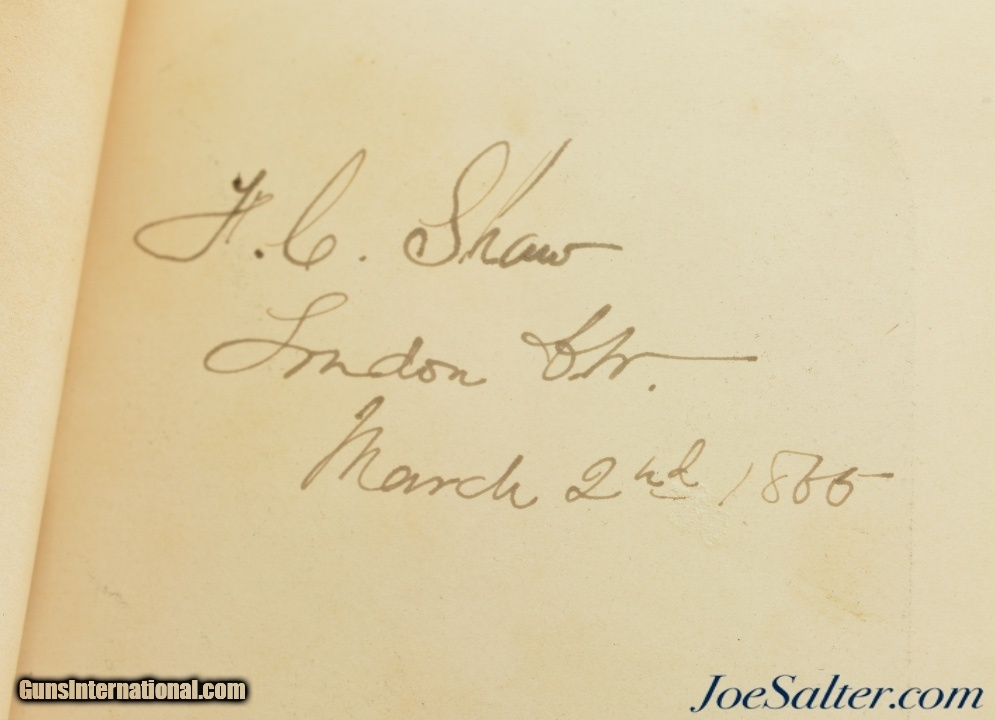 F. C. Shaw
London
March 2nd 1865
GunsInternational.com
JoeSalter.com